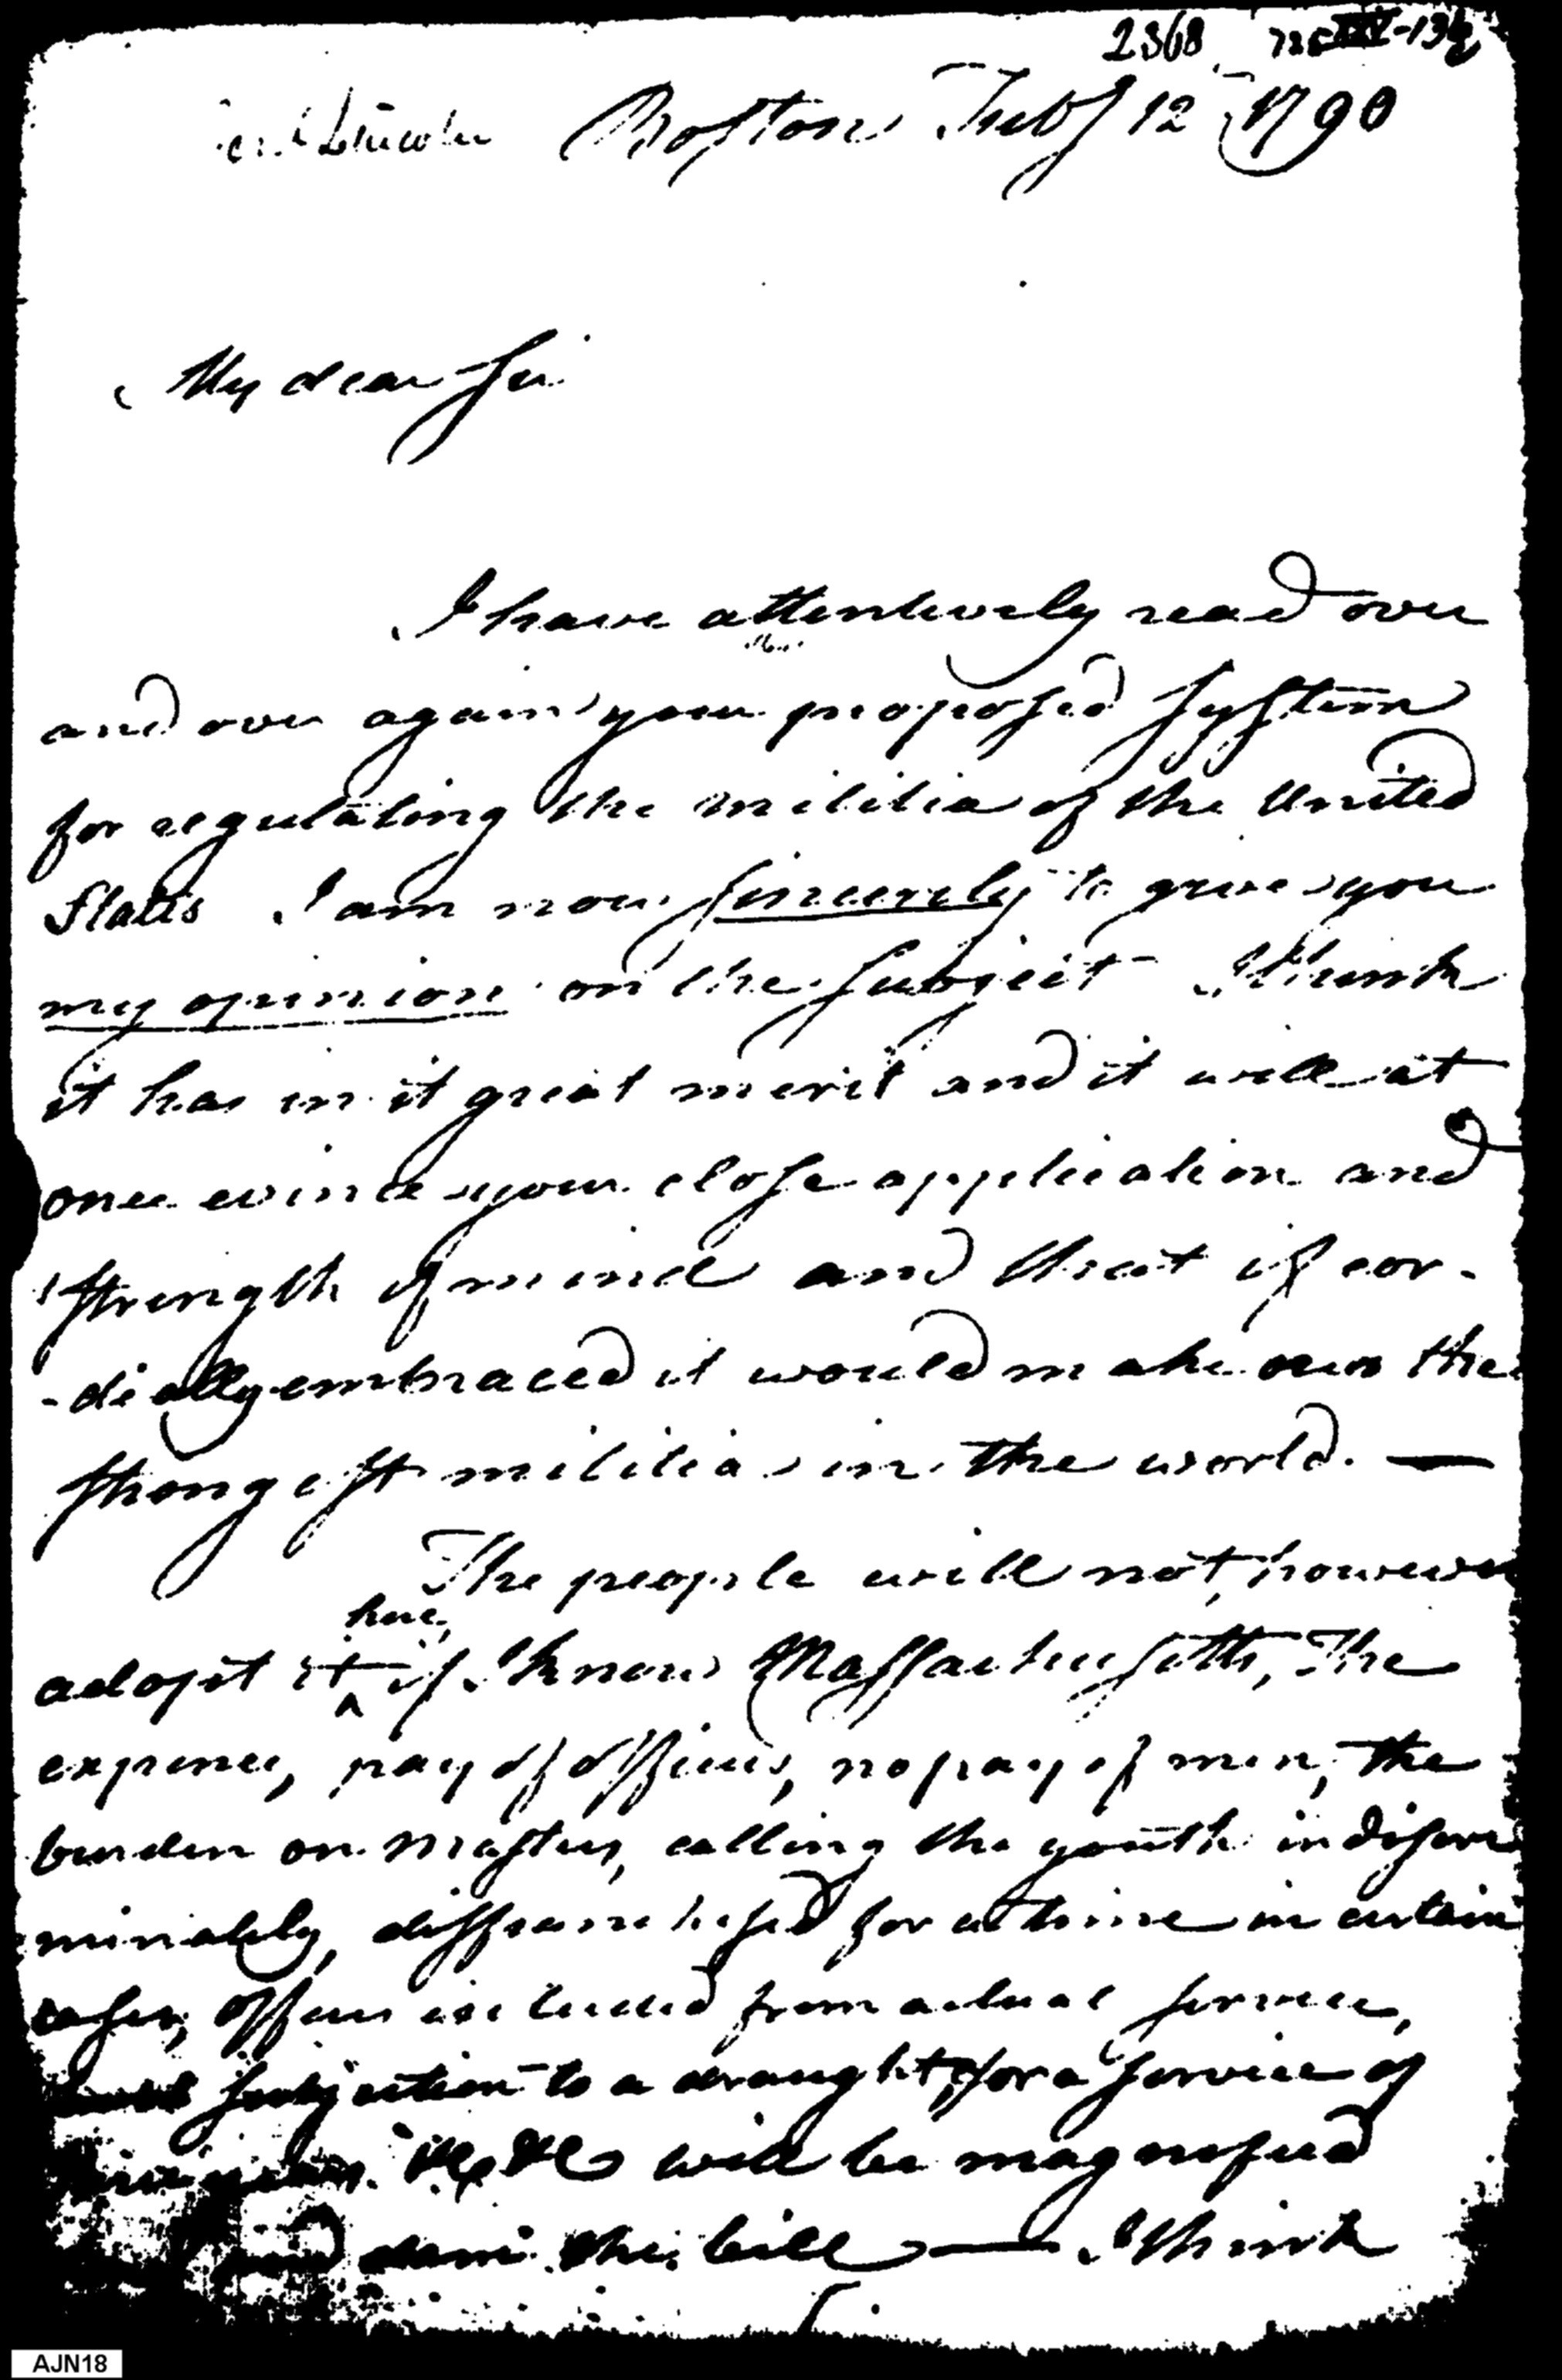 2368
Lincoln Boston Feby 12 1790
My dear Sir
I have attentively read over
and over again your proposed system
for regulating the militia of the United
States I am now sincerely to give you
my opinion on the subject I think
it has in it great merit and it will at
once evince your close application and
strength of mind and that if cor-
-dially embraced it would make ours the
strongest militia in the world. —
The people will not, however
here,
adopt it ^ if I know Massachusetts, The
expences, pay of officers, no pay of men, the
burden on Masters, calling the youth indiscri
minately, disfranchised for a time in certain
cases, officers excluded from actual service,
subjection to a draught, for a service of
&c &c will be magnified
and damn the bill — I think
AJN18